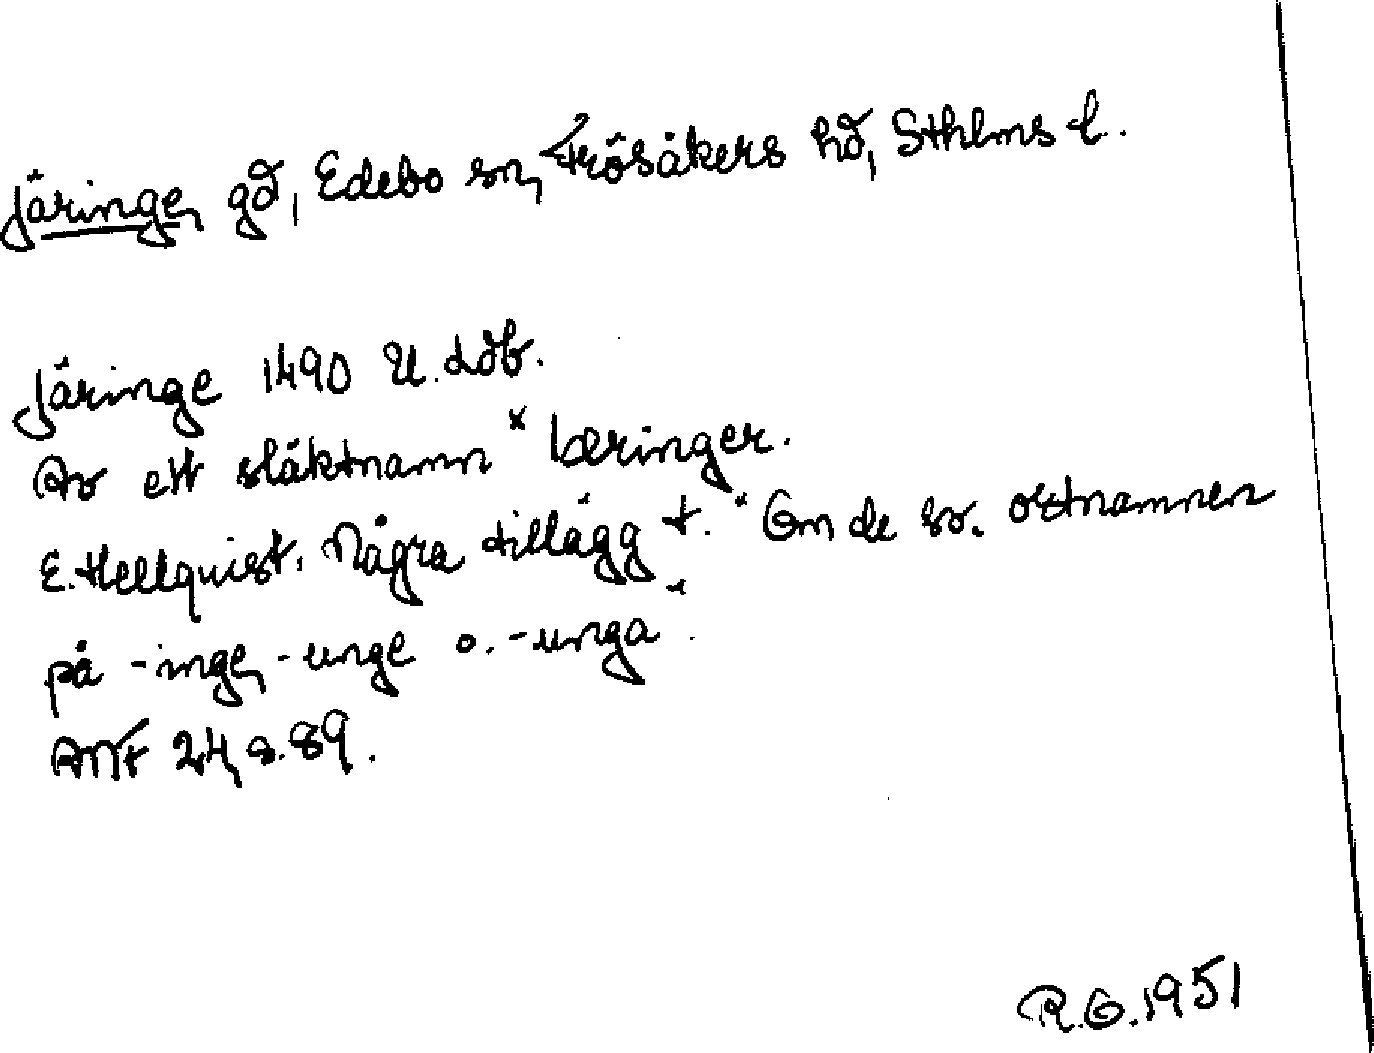 Järinge, gd, Edebo sn, Frösåkers hd, Sthlms l.
Järinge 1490 U. döb.
Av ett släktnamn * bæringer.
E. Hellquist. Några tillägg t. "Om de sv. ortnamnen
på -inge, -unge o. -unga".
ANF 24, s. 89.
R.G. 1951